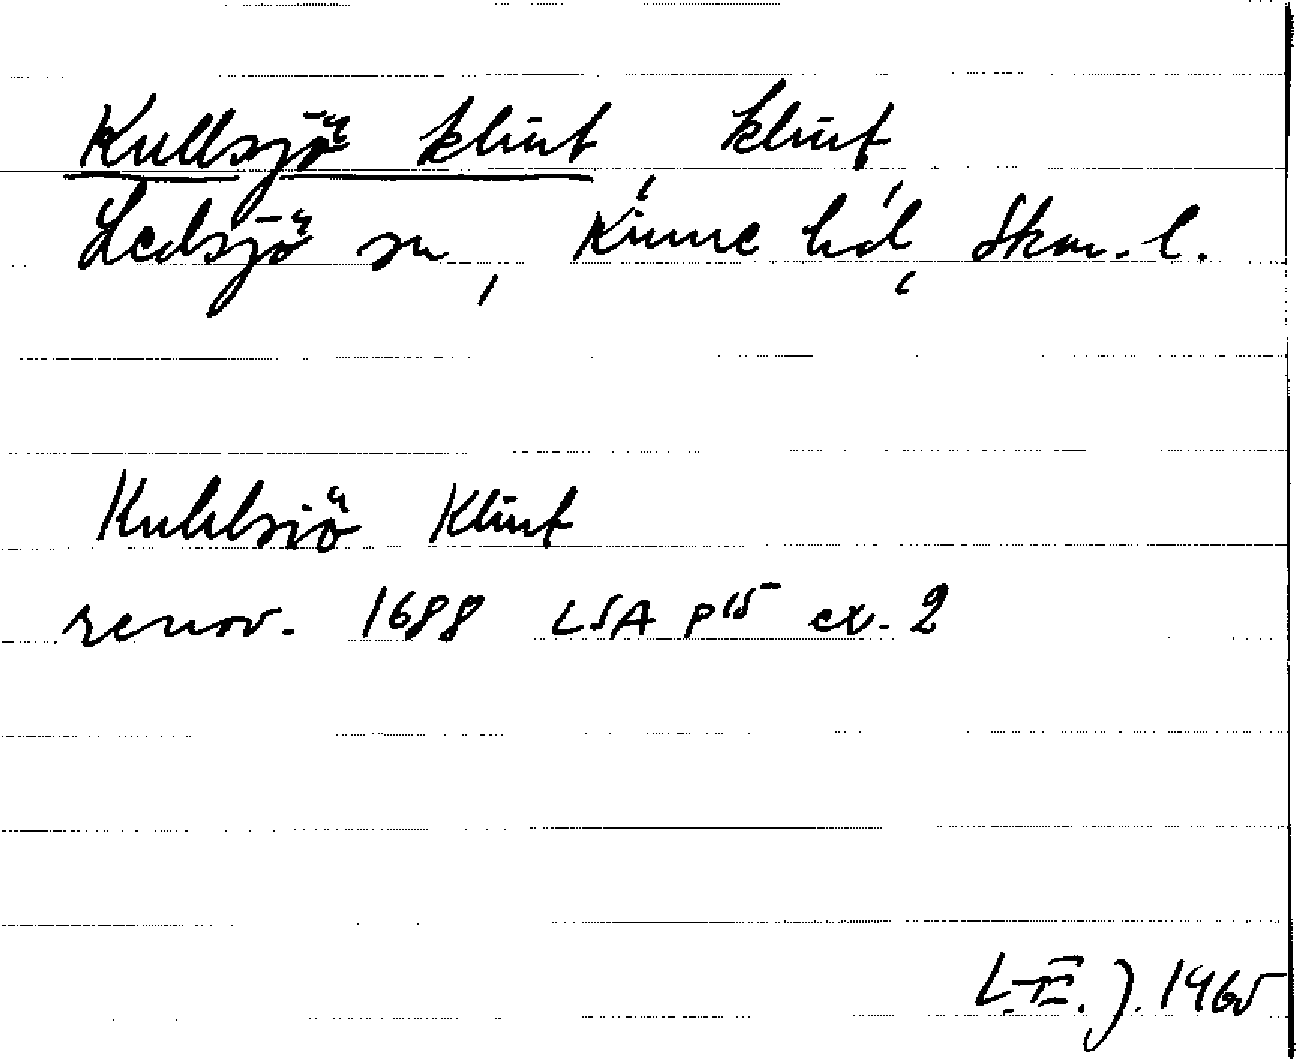 Kullsjö klint klint
Ledsjö sn, Kinne hd, Skar. l.
Kuhlsiö Klint
renov. 1688 LSA P15 ex. 2
L-E. J. 1965